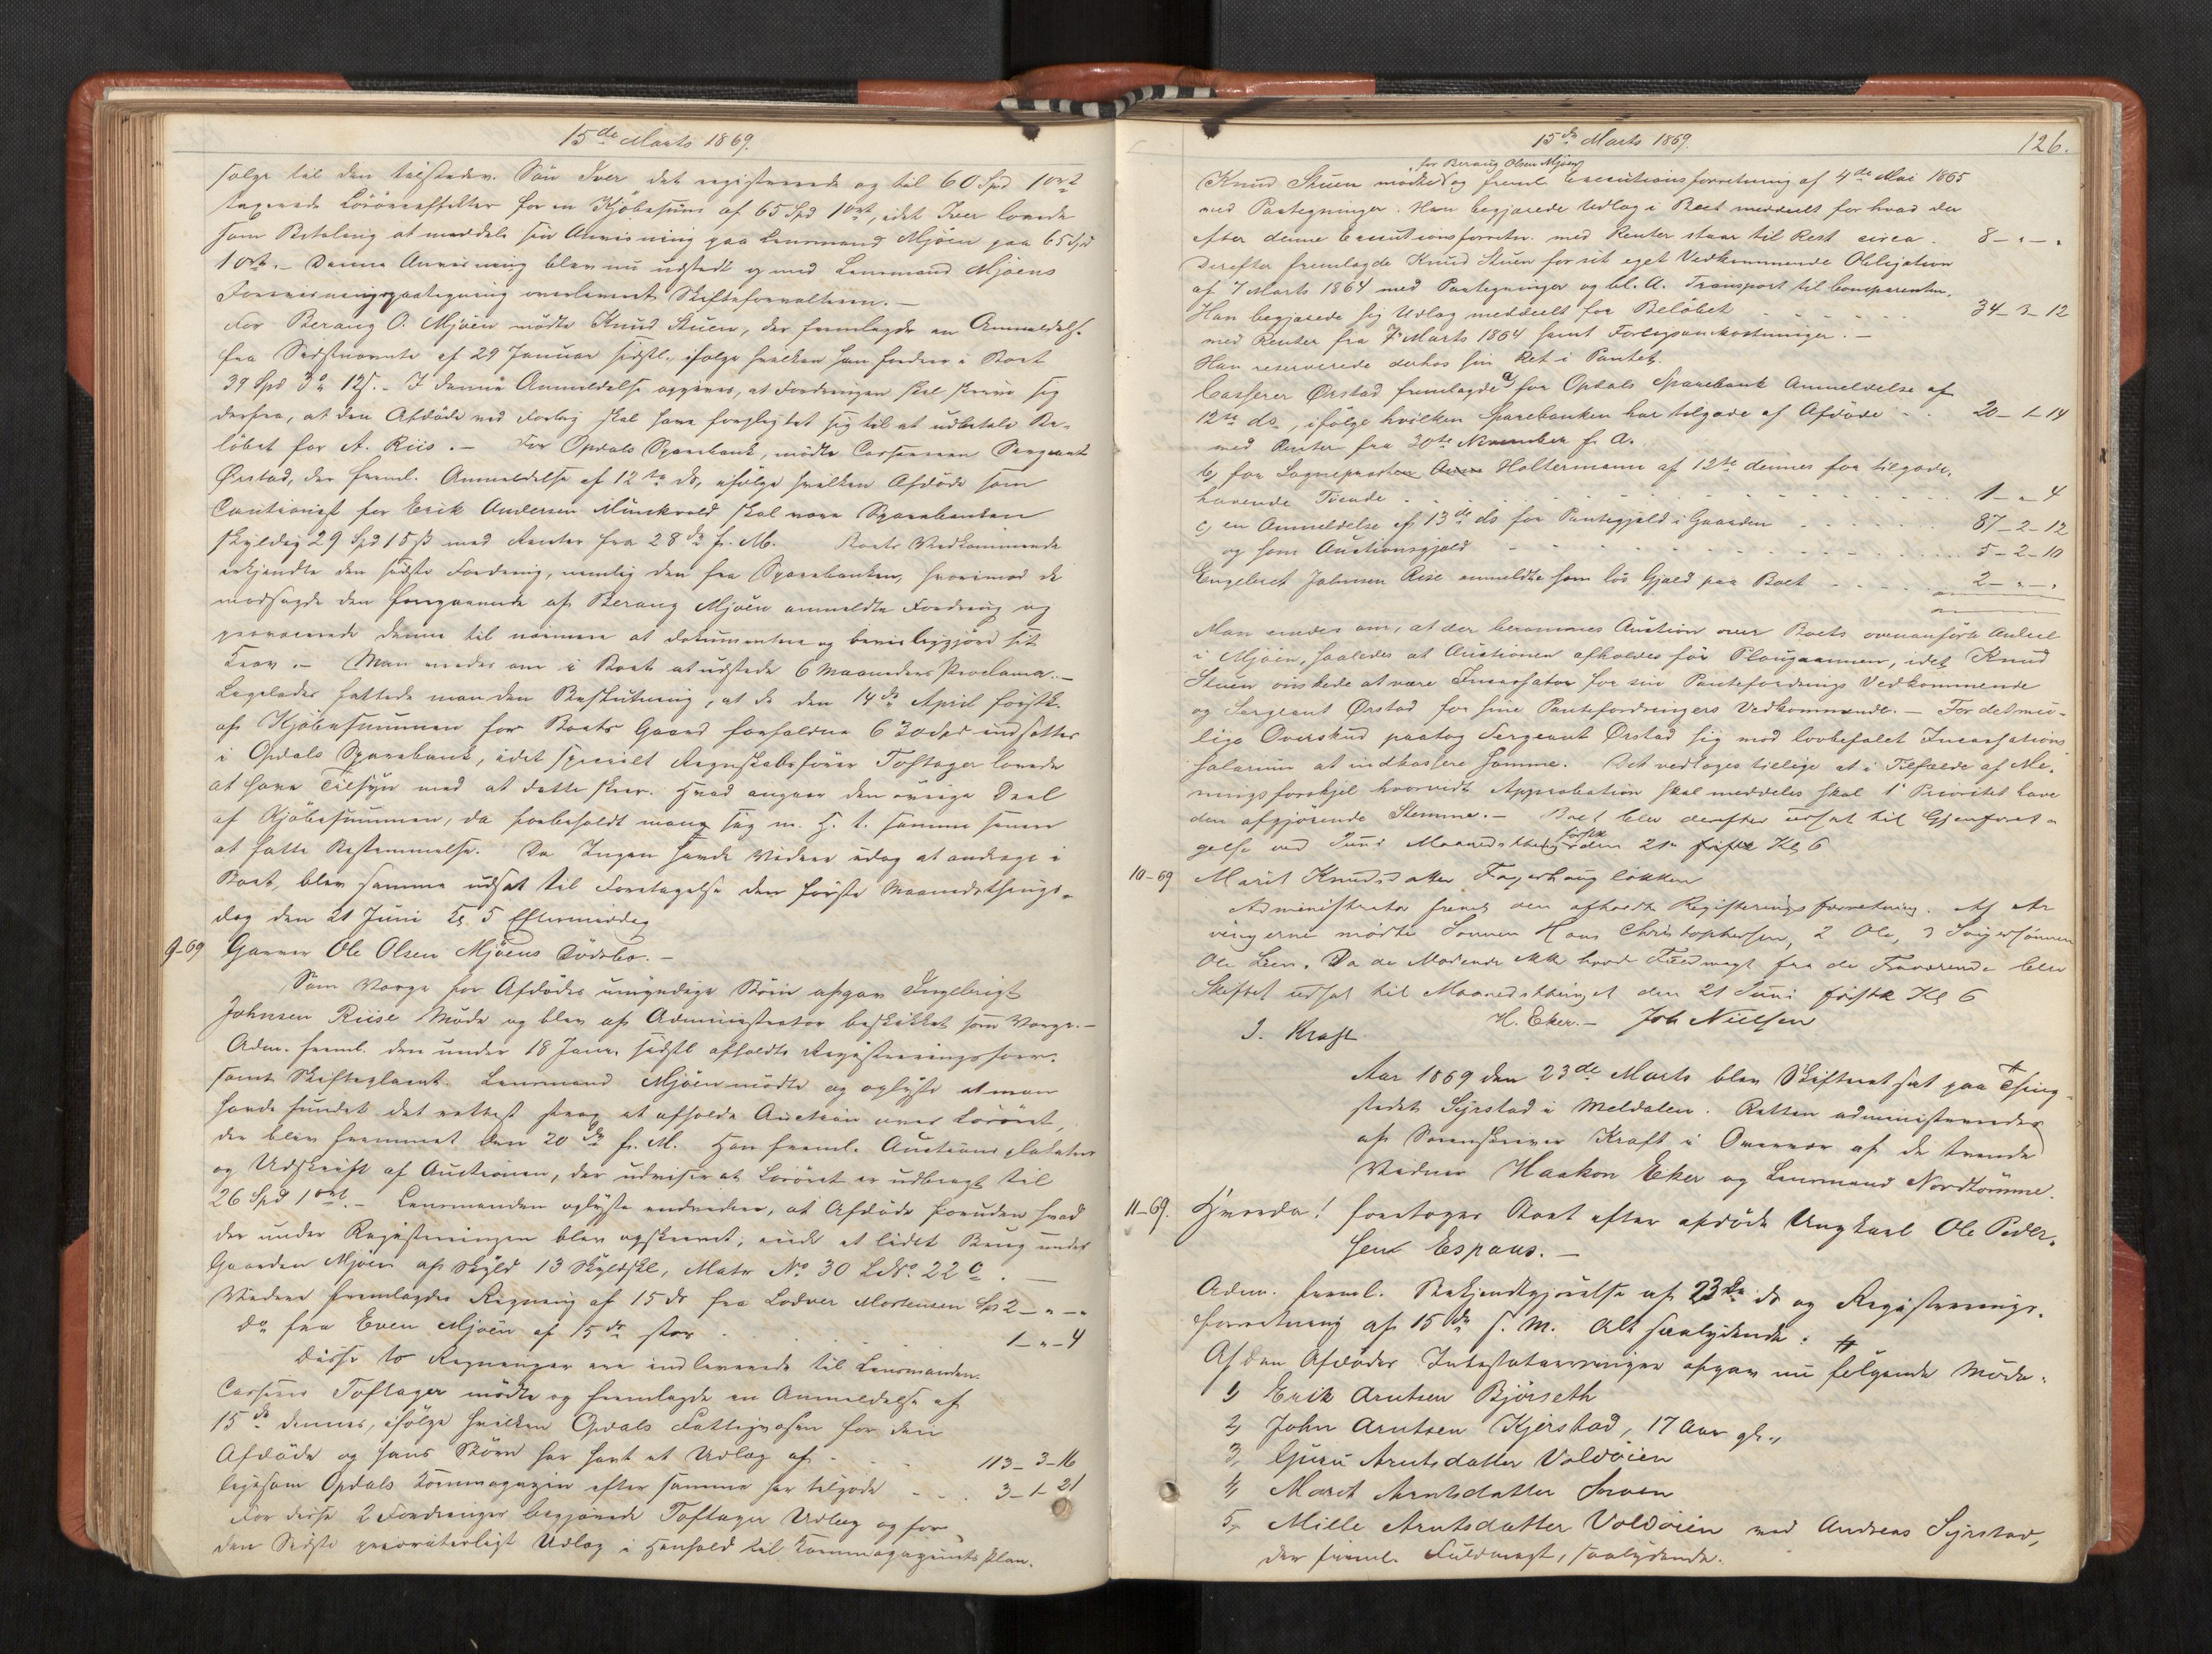 15de Marts 1869.
sælge til den tilstedev. Søn Iver det registrerede og til 60 Spd 1 ort
taxerede Løsøreeffekter for en Kjøbesum af 65 Spd 1 ort, idet Iver lovede
som Betaling at meddele sin Anvisning paa Lensmand Mjøen paa 65 Spd
1 ort. - Denne Anvisning blev nu udstedt og med Lensmand Mjøens
paategning overleveret Skifteforvalteren. -
For Beraug O. Mjøen mødte Knud Stuen, der fremlagde en Anmeldelse
fra Sidstnævnte af 29 Januar sidstl., ifølge hvilken han fordrer i Boet
39 Spd 3 o 12 s. - I denne Anmeldelse opgives, at Fordringen skal skrive sig
derfra, at den Afdøde ved Forlig skal have forpligtet sig til at udbetale Be-
løbet for A. Riis. - For Opdals Sparebank, mødte Casereren Sergeant
Ørstad, der freml. Anmeldelse af 12te ds, ifølge hvilken Afdøde som
Cautionist for Erik Andersen Munkvold skal være Sparebanken
skyldig 29 Spd 15 ß med Renter fra 28de f. M. Boets Vedkommende
erkjendte den sidste Fordring, nemlig den fra Sparebanken, hvorimod de
modsagde den foregaaende af Beraug Mjøen anmeldte Fordring og
provocerede denne til nærmere at dokumentere og bevisliggjøre sit
Krav. - Man enedes om i Boet at udstede 6 Maaneders Proclama. -
Ligeledes fattede man den Beslutning, at de den 14de April førstk.
af Kjøbesummen for Boets Gaard forfaldne 630 Spd indsættes
i Opdals Sparebank, idet specielt Regnskabsfører Toftager lovede
at have Tilsyn med at dette skeer. Hvad angaar den øvrige Deel
af Kjøbesummen, da forbeholdt man sig m. H. t. samme senere
at fatte Bestemmelse. Da Ingen havde Videre idag at andrage i
Boet, blev samme udsat til Foretagelse den første Maanedsthings-
dag den 21 Juni Kl 5 Eftermiddag
9-69 Garver Ole Olsen Mjøens Dødsbo. -
Som Værge for Afdødes umyndige Børn afgav Ingebrigt
Johnsen Riise Møde og blev af Administrator beskikket som Værge. -
Adm. freml. den under 18 Janr. sidstl afholdte Registreringsforr.
samt Skifteplacat. Lensmand Mjøen mødte og oplyste at man
havde fundet det rettest strax at afholde Auction over Løsøret,
der blev fremmet den 20de f. M. Han freml. Auctionsplakaten
og Udskrift af Auctionen, der udviser at Løsøret er udbragt til
26 Spd 1 ort. - Lensmanden oplyste endvidere, at Afdøde foruden hvad
der under Registreringen blev opskrevet, eiede et lidet Brug under
Gaarden Mjøen af Skyld 13 Skyldskl, Matr No 30 LNo. 22 c. -
Videre fremlagdes Regning af 15 ds fra Lodver Mortensen Sp 2 - " - "
do fra Even Mjøen af 15 ds stor . . . 1 - " - 4
Disse to Regninger ere indleverede til Lensmanden.
Caserer Toftager mødte og fremlagde en Anmeldelse af
15de dennes, ifølge hvilken Opdals Fattigvæsen for den
Afdøde og hans Børn har havt et Udlæg af . . . 113 - 3 - 16
ligesom Opdals Kornmagazin efter samme har tilgode . . . 3 - 1 - 21
For disse 2 Fordringer begjærede Toftager Udlæg og for
den Sidste prioriteterligt Udlæg i Henhold til Kornmagazinets Plan.
15de Marts 1869.
126.
for Beraug Olsen Mjøen
Knud Stuen mødte og freml Executionsforretning af 4de Mai 1865
med Paategninger. Han begjærede Udlæg i Boet meddeelt for hvad der
efter denne Executionsforretn. med Renter staar til Rest circa . 8 - " - "
Derefter fremlagde Knud Stuen for sit eget Vedkommende Obligation
af 7 Marts 1864 med Paategninger og bl. A. Transport til Comparenten.
Han begjærede sig Udlæg meddeelt for Beløbet . . . 34 - 3 - 12
med Renter fra 7 Marts 1864 samt Forligsomkostninger. -
Han reserverede derhos sin Ret i Pantet.
Casserer Ørstad fremlagde a) for Opdals Sparebank Anmeldelse af
12te ds, ifølge hvilken Sparebanken har tilgode af Afdøde . . 20 - 1 - 14
med Renter fra 30te November f. A.
b) for Sognepræsten Holtermann af 12te dennes for tilgode-
havende Tiende . . . 1 - " - 4
c) en Anmeldelse af 13de ds for Pantegjæld i Gaarden . . . 87 - 2 - 12
og som Auctionsgjæld . . . 5 - 2 - 10
Engebret Johnsen Rise anmeldte som løs Gjæld paa Boet . . . 2 - " - "
Man enedes om, at der berammes Auction over Boets ovenanførte Anteel
i Mjøen, saaledes at Auctionen afholdes før Plougaannen, idet Knud
Stuen ønskede at være Incassator for sin Pantefordrings Vedkommende
og Sergeant Ørstad for sine Pantefordringers Vedkommende. - For det mu-
lige Overskud paatog Sergeant Ørstad sig mod lovbefalet Incassations
salarium at indkassere samme. Det vedtoges tillige at i Tilfælde af Me-
ningsforskjel hvorvidt Approbation skal meddeles skal 1 Prioritet have
den afgjørende Stemme. - Boet blev derefter udsat til Gjenforet-
gelse ved Juni Maanedsthing førstk den 21de Kl 6
10-69 Marit Knudsdatter Fagerhaugløkken
Administrator freml den afholdte Registreringsforretning. Af Ar
vingerne mødte Sønnen Hans Christophersen, 2 Ole, 3 Svigersønnen
Ole Leen. Da de Mødende ikke havde Fuldmagt fra de Fraværende blev
Skiftet udsat til Maanedsthinget den 21 Juni førstk Kl 6
J. Kraft H. Eker. - Joh Nielsen
Aar 1869 den 23de Marts blev Skifteret sat paa Thing-
stedet Syrstad i Meldalen. Retten administreredes
af Sorenskriver Kraft i Overvær af de tvende
Vidner Haakon Eker og Lensmand Nordtømme.
11-69. Hvorda! foretoges Boet efter afdøde Ungkarl Ole Peder-
sen Espaas. -
Adm. freml. Bekjendtgjørelse af 23de ds og Registrerings-
forretning af 15de f. M. Alt saalydende: #
Af den Afdødes Intestatarvinger afgav nu følgende Møde:
1, Erik Arntsen Bjørseth
2, John Arntsen Kjerstad, 17 Aar gl.,
3, Guru Arntsdatter Voldøien
4, Marit Arntsdatter
5, Mille Arntsdatter Voldøien ved Andreas Syrstad,
der freml. Fuldmagt, saalydende.